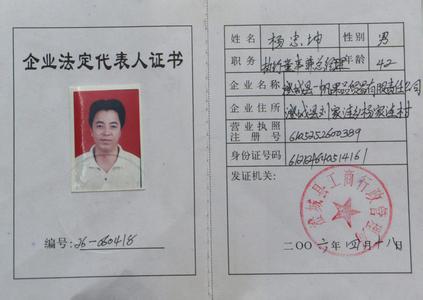 企业法定代表人证书
编号:26-060418
姓名 杨忠坤 性别 男
职务 执行董事兼总经理 年龄 42
企业名称 澄城县一帆果品贸易有限责任公司
企业住所 澄城县刘家洼乡杨家洼村
营业执照
注册号 6105252602389
身份证号码
发证机关:
澄城县工商行政管理局
二〇〇六年四月十八日